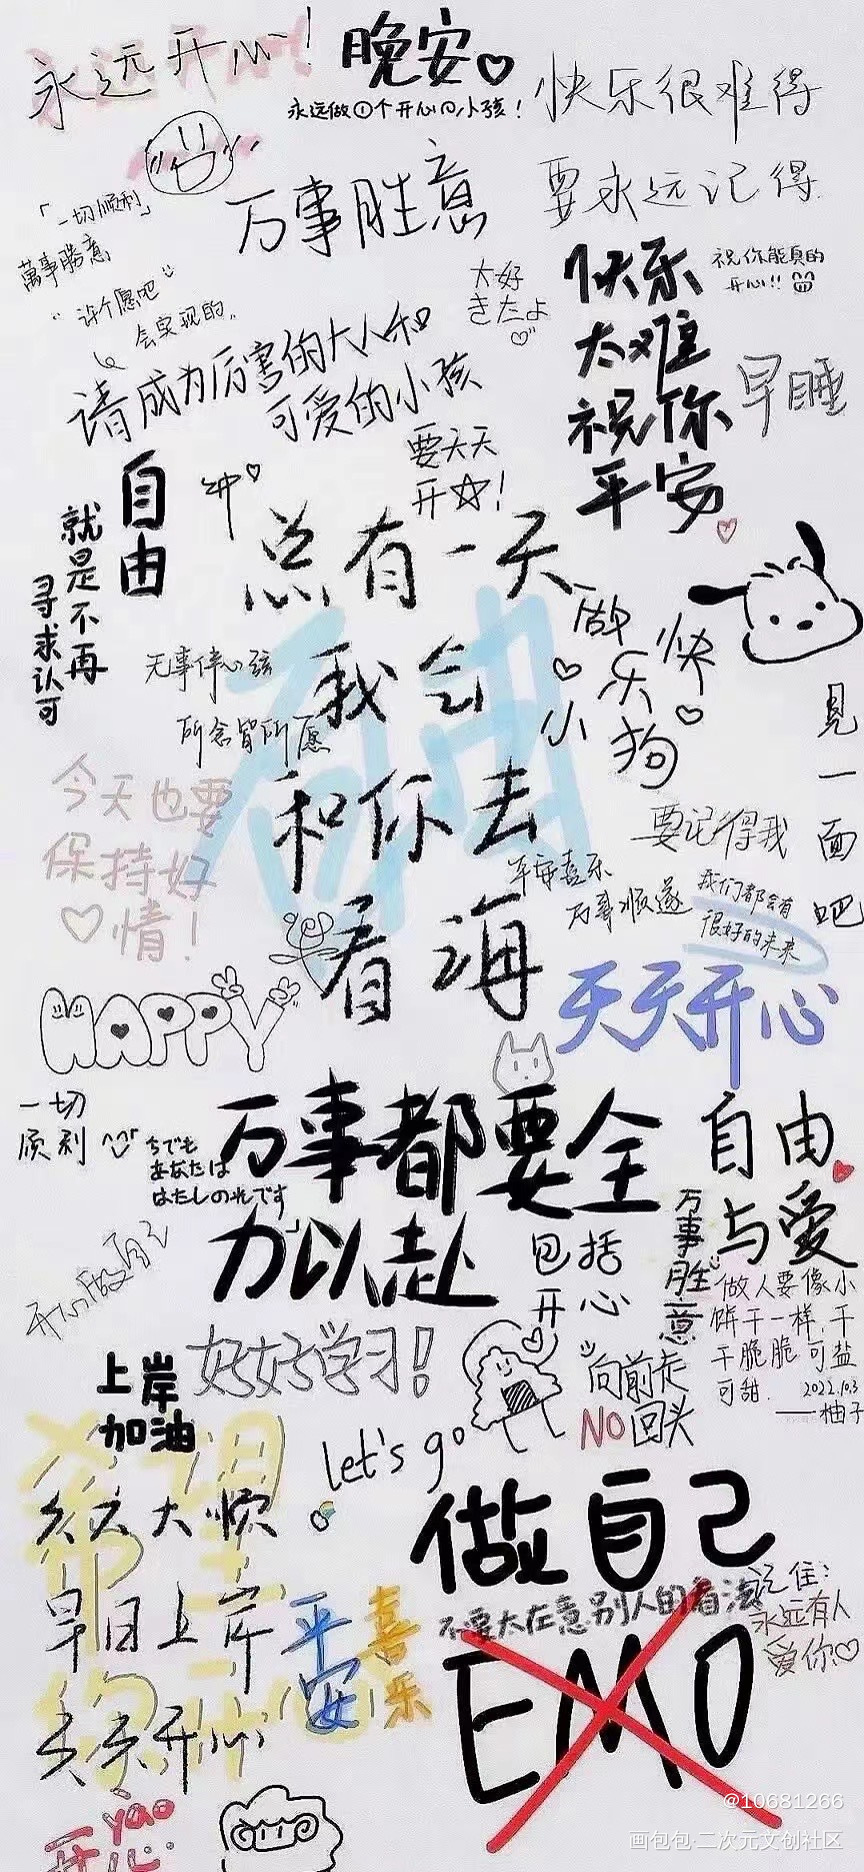 永远开心!
晚安
永远做①个开心の小孩!
快乐很难得
要永远记得
「一切顺利」
萬事勝意
万事胜意
许个愿吧
会实现的。
大好
きだよ
快乐
太难
祝你
平安
祝你能真的
开心!!
早睡
请成为厉害的大人和
可爱的小孩
要天天
开☆!
自由
就是不再
寻求认可
冲
总有一天
我会
和你去
看海
自由
无事绊心弦
所念皆所愿
做
快乐
小狗
见一面吧
今天也要
保持好
♡情!
要记得我
平安喜乐
万事顺遂
我们都会有
很好的未来
HAPPY
天天开心
一切
顺利
万事都要全
力以赴
包括
开心
あなたは
自由
与爱
万事胜意
开心做自己
好好学习!
上岸
加油
let's go
向前走
NO回头
做人要像小
饼干一样,干
干脆脆可盐
可甜.
2022.10.3
——柚子
希望
你
久久大顺
早日上岸
天天开心
平安
喜乐
做自己
不要太在意别人的看法
EMO
记住:
永远有人
爱你♡
yao
开心
@10681266
画包包·二次元文创社区